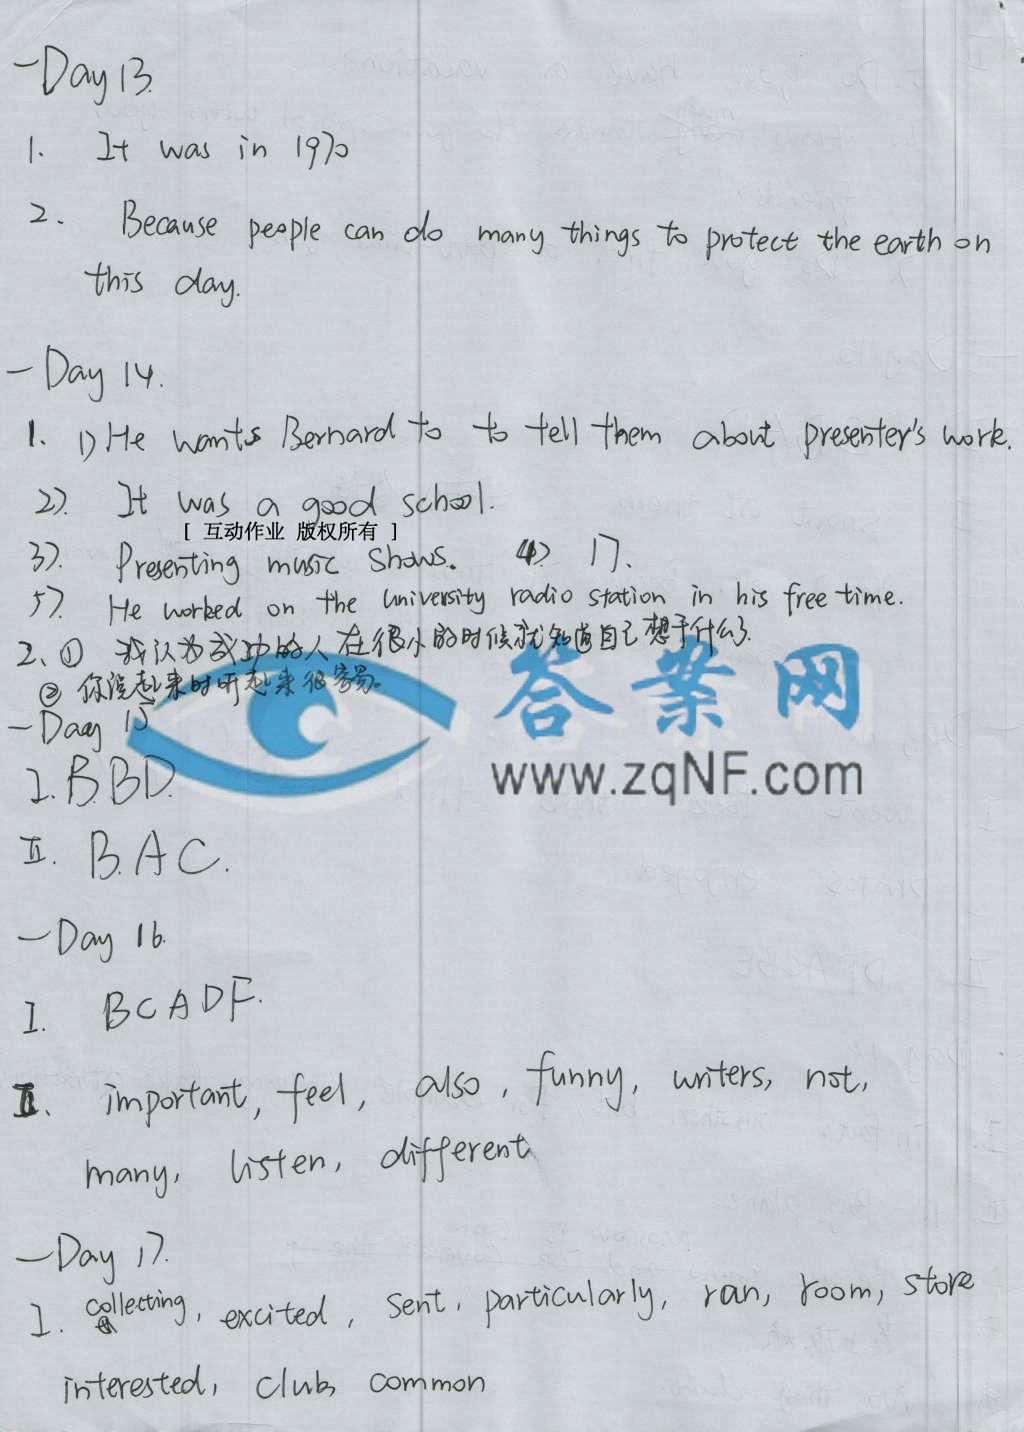 一Day 13.
1. It was in 1970
2. Because people can do many things to protect the earth on
this day.
一Day 14.
1. 1) He wants Bernard to to tell them about presenter's work.
2). It was a good school.
[ 互动作业 版权所有 ]
3). Presenting music shows. 4) 17.
5). He worked on the university radio station in his free time.
2、① 我认为成功的人在很小的时候就知道自己想干什么了.
② 你说起来时听起来很容易。
一Day 15
答案网
www.zqNF.com
I. B.BD.
II. B.AC.
一Day 16.
I. BCADF.
II. important, feel, also, funny, writers, not,
many, listen, different
一Day 17.
I. collecting, excited, sent, particularly, ran, room, store
interested, club, common